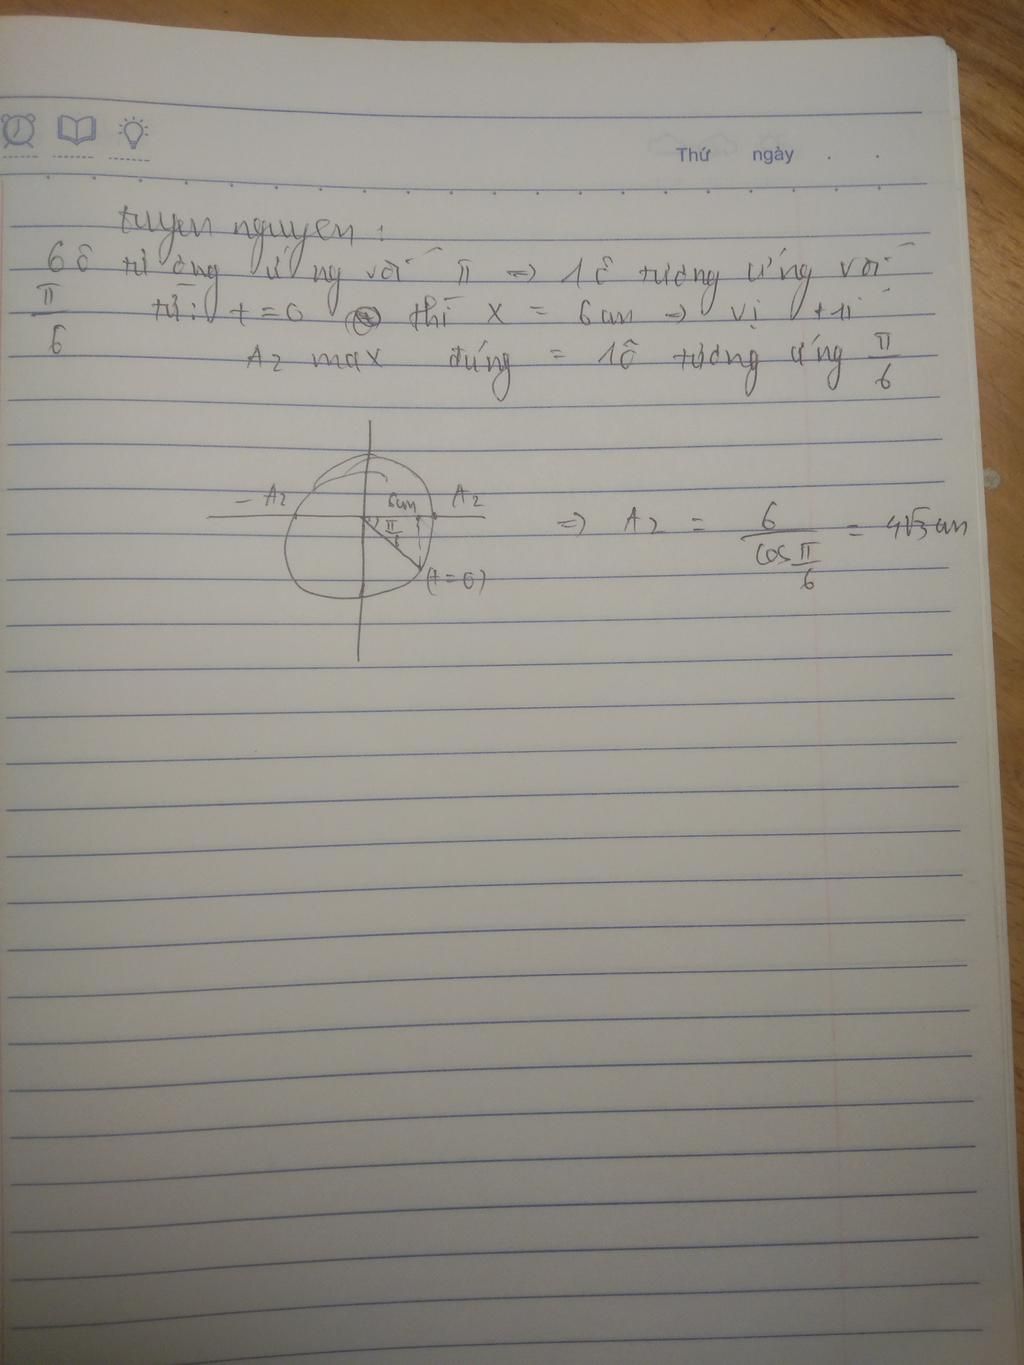 Thứ ngày . .
tuyen nguyen :
6 ô tương ứng với π => 1 ô tương ứng với
π/6 từ: t = 0 thì x = 6cm => vị trí
A2 max đứng = 1ô tương ứng π/6
- A2 6cm A2
π/6
(t = 0)
=> A2 = 6/cos π/6 = 4√3 cm